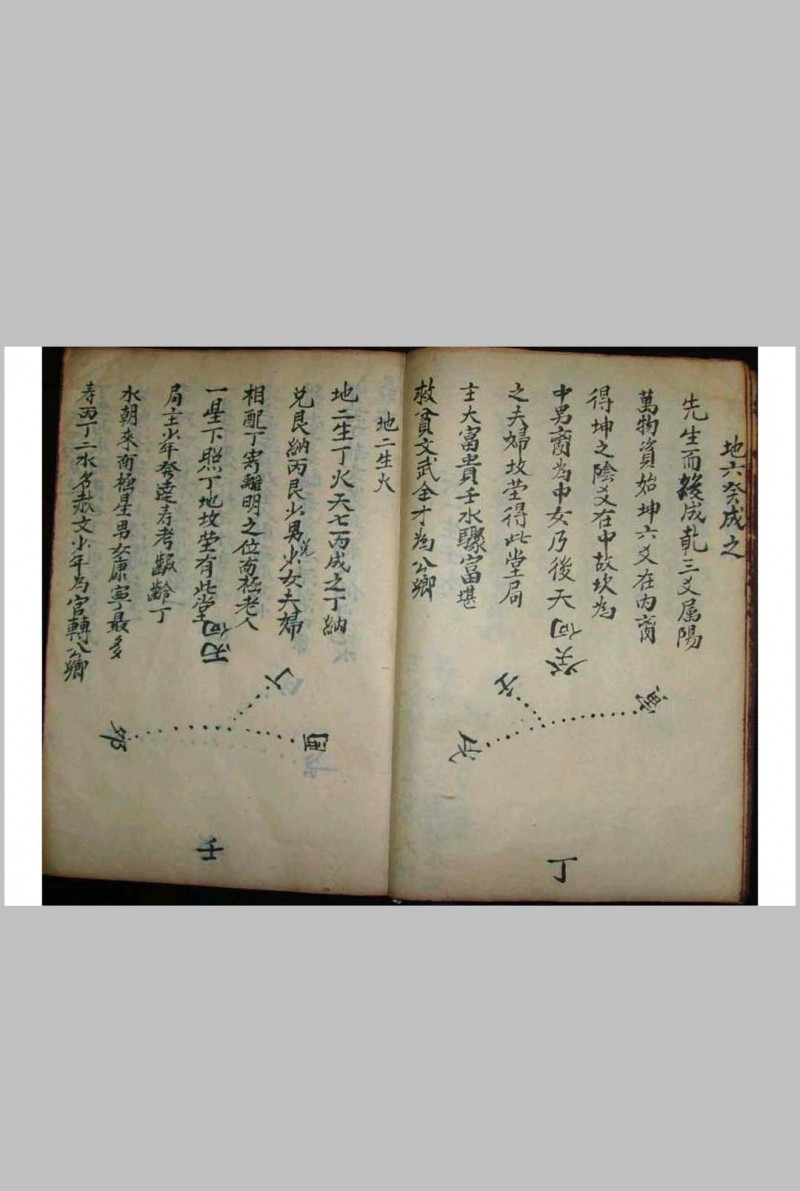 地六癸成之
先生而後成乾三爻属陽
萬物資始坤六爻在内
得坤之陰爻在中故坎為
中男离為中女乃後天
之夫婦坟茔得此堂局
士大富貴壬水驟富堪
救貧文武全才為公卿
癸向
丁
地二生火
地二生丁火天七丙成之丁納
兑艮納丙艮少男兑少女夫婦
相配丁寄離明之位南極老人
一星下照丁地坟茔有此堂
局主少年發達寿考齯齡丁
水朝來南極星男女康寧最多
寿丙丁二水名赦文少年為官轉公卿
丙向
壬